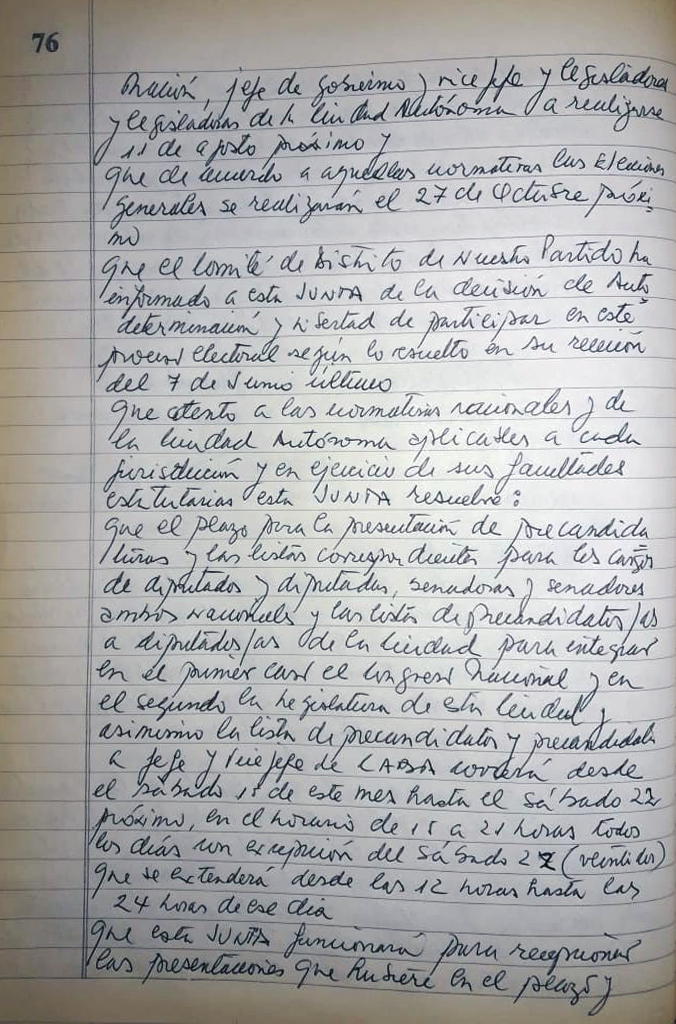 76
Nación, jefe de gobierno y vice jefe y legisladores
y legisladoras de la Ciudad Autónoma a realizarse
11 de agosto próximo y
que de acuerdo a aquellas normativas las Elecciones
generales se realizarán el 27 de Octubre próxi
mo
que el Comité de Distrito de Nuestro Partido ha
informado a esta JUNTA de la decisión de Auto
determinación y libertad de participar en este
proceso electoral según lo resuelto en su reunión
del 7 de Junio último
que atento a las normativas nacionales y de
la Ciudad Autónoma aplicables a cada
jurisdicción y en ejercicio de sus facultades
estatutarias esta JUNTA resuelve:
que el plazo para la presentación de precandida
turas y las listas correspondientes para los cargos
de diputados y diputadas, senadoras y senadores
ambos nacionales y las listas de precandidatos/as
a diputados/as de la Ciudad para integrar
en el primer caso el Congreso Nacional y en
el segundo la Legislatura de esta Ciudad y
asimismo la lista de precandidatos y precandidatas
a Jefe y Vice jefe de CABA correrá desde
el Sábado 15 de este mes hasta el Sábado 22
próximo, en el horario de 15 a 21 horas todos
los días con excepción del Sábado 22 (veintidos)
que se extenderá desde las 12 horas hasta las
24 horas de ese día
que esta JUNTA funcionará para recepcionar
las presentaciones que hubiere en el plazo y